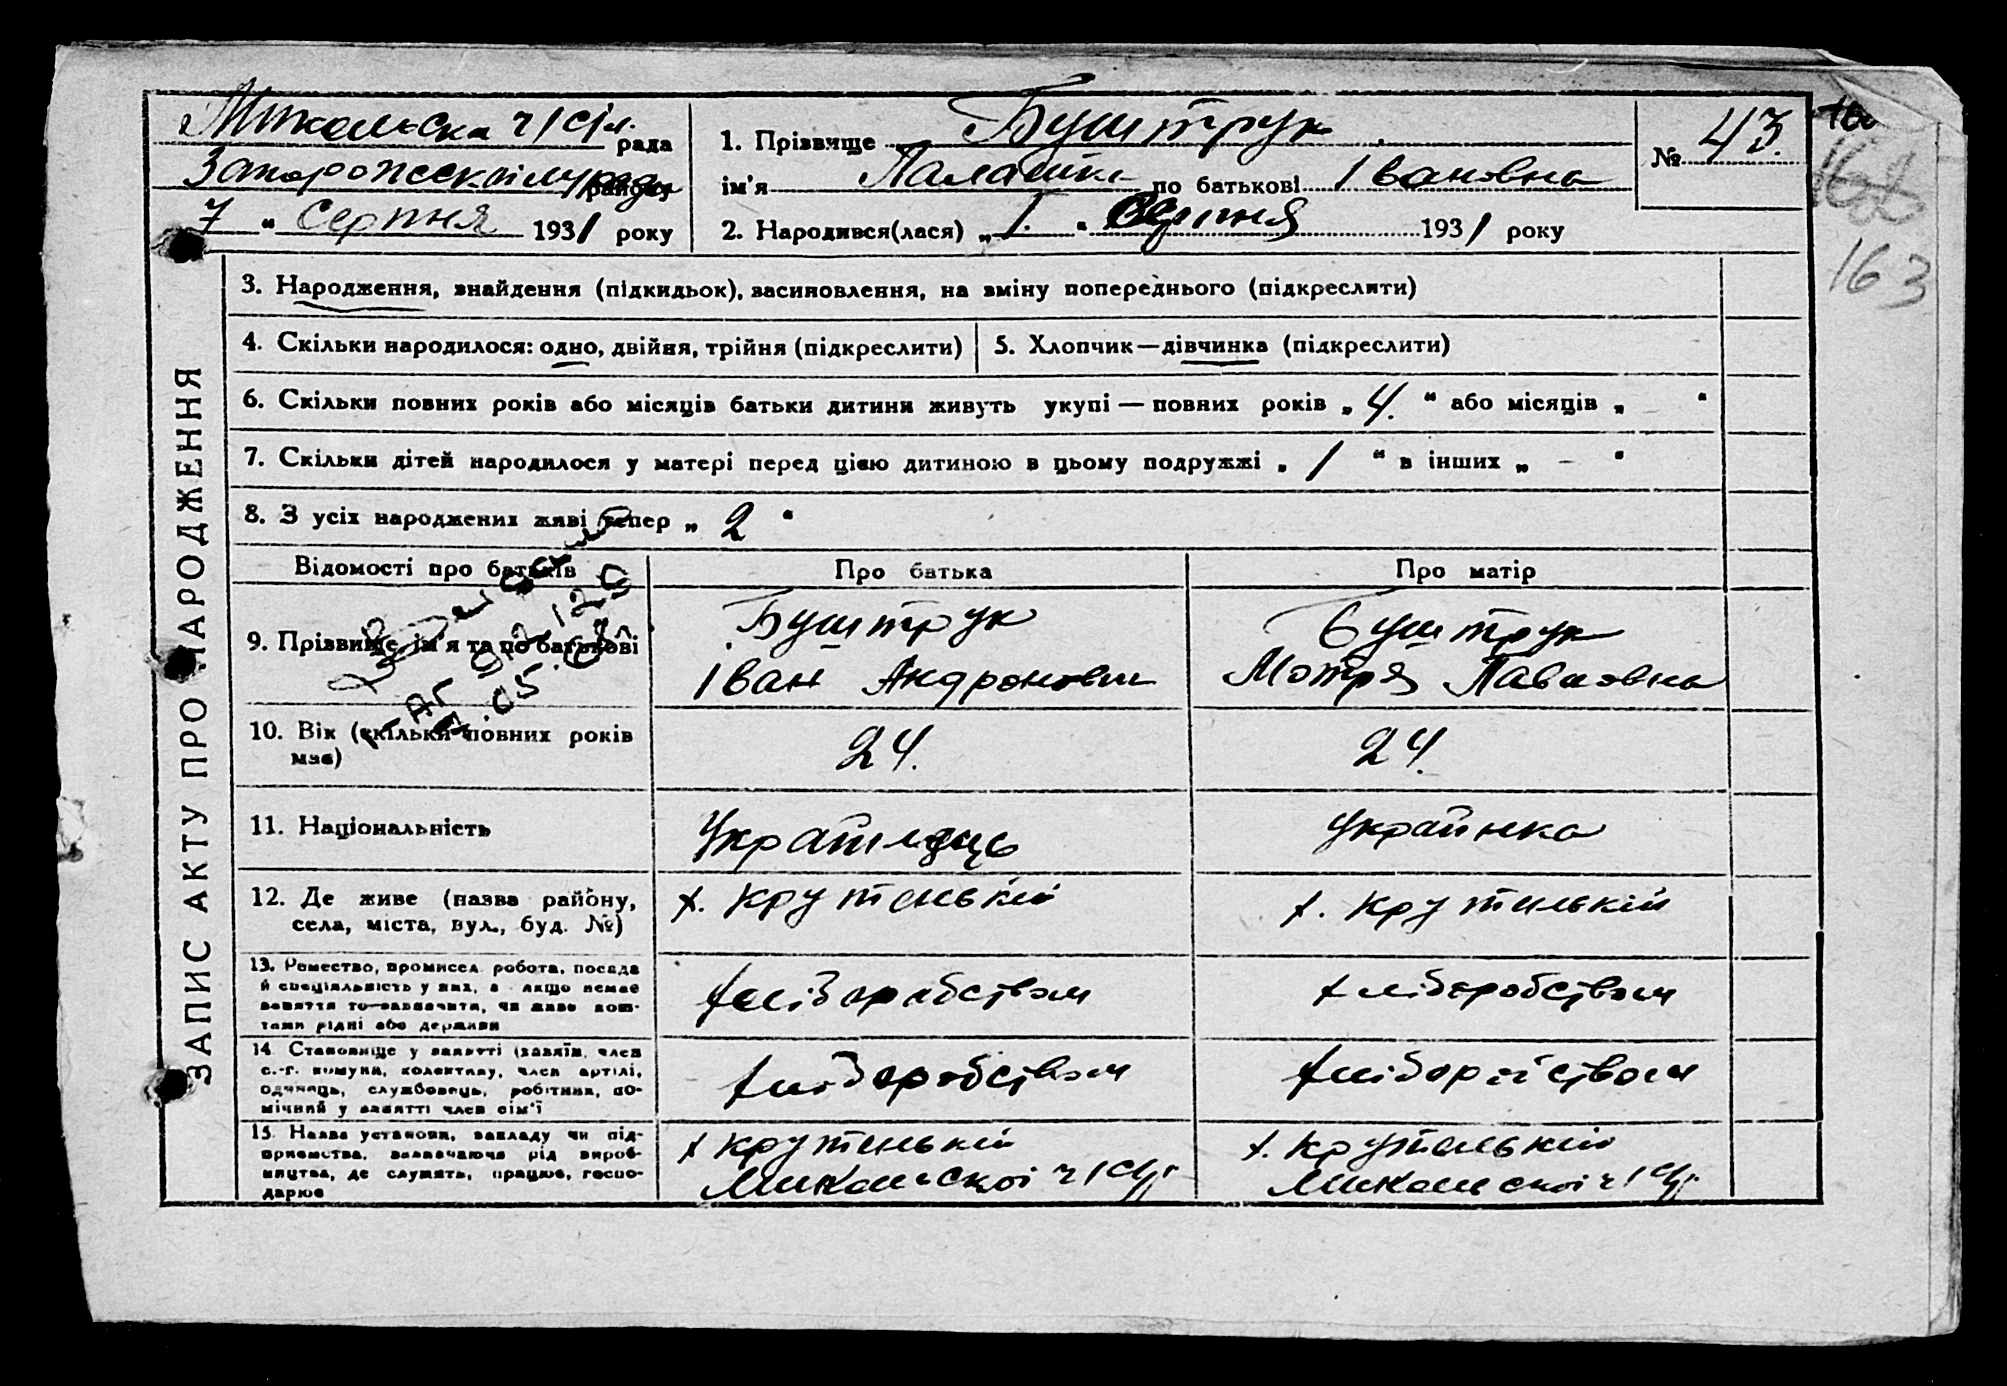 Микольска ч/с/л. рада
Запорожскпілурада району
7 " серпня 1931 року
1. Прізвище Буштрук
ім'я Палашка по батькові Івановна
2. Народився(лася) „ 1. " Серпня 1931 року
№ 43.
163
ЗАПИС АКТУ ПРО НАРОДЖЕННЯ
3. Народження, знайдення (підкидьок), засиновлення, на зміну попереднього (підкреслити)
4. Скільки народилося: одно, двійня, трійня (підкреслити)
5. Хлопчик—дівчинка (підкреслити)
6. Скільки повних років або місяців батьки дитини живуть укупі — повних років „ 4. " або місяців „ - "
7. Скільки дітей народилося у матері перед цією дитиною в цьому подружжі „ 1 " в інших „ - "
8. З усіх народжених живі тепер „ 2 "
Відомості про батьків
Про батька
Про матір
9. Прізвище, ім'я та по батькові
Буштрук
Іван Андронович
Буштрук
Мотря Павловна
10. Вік (скільки повних років має)
24.
24.
11. Національність
Українець
Українка
12. Де живе (назва району,
села, міста, вул., буд. №)
х. Крутенькій
х. Крутенькій
13. Ремество, промисел, робота, посада
й спеціяльність у них, а якщо немає
заняття то—зазначити, чи живе кош-
тами рідні або держави
хліборобством
хліборобством
14. Становище у занятті (хазяїн, член
с.-г. комуни, колективу, член артілі,
одинець, службовець, робітник, по-
мічний у занятті член сім'ї
хліборобством
хліборобством
15. Назва установи, закладу чи під-
приємства, зазначаючи рід вироб-
ництва, де служить, працює, госпо-
дарює
х Крутенькій
Микольской ч/с/р.
х. Крутенькій
Микольской ч/с/р.